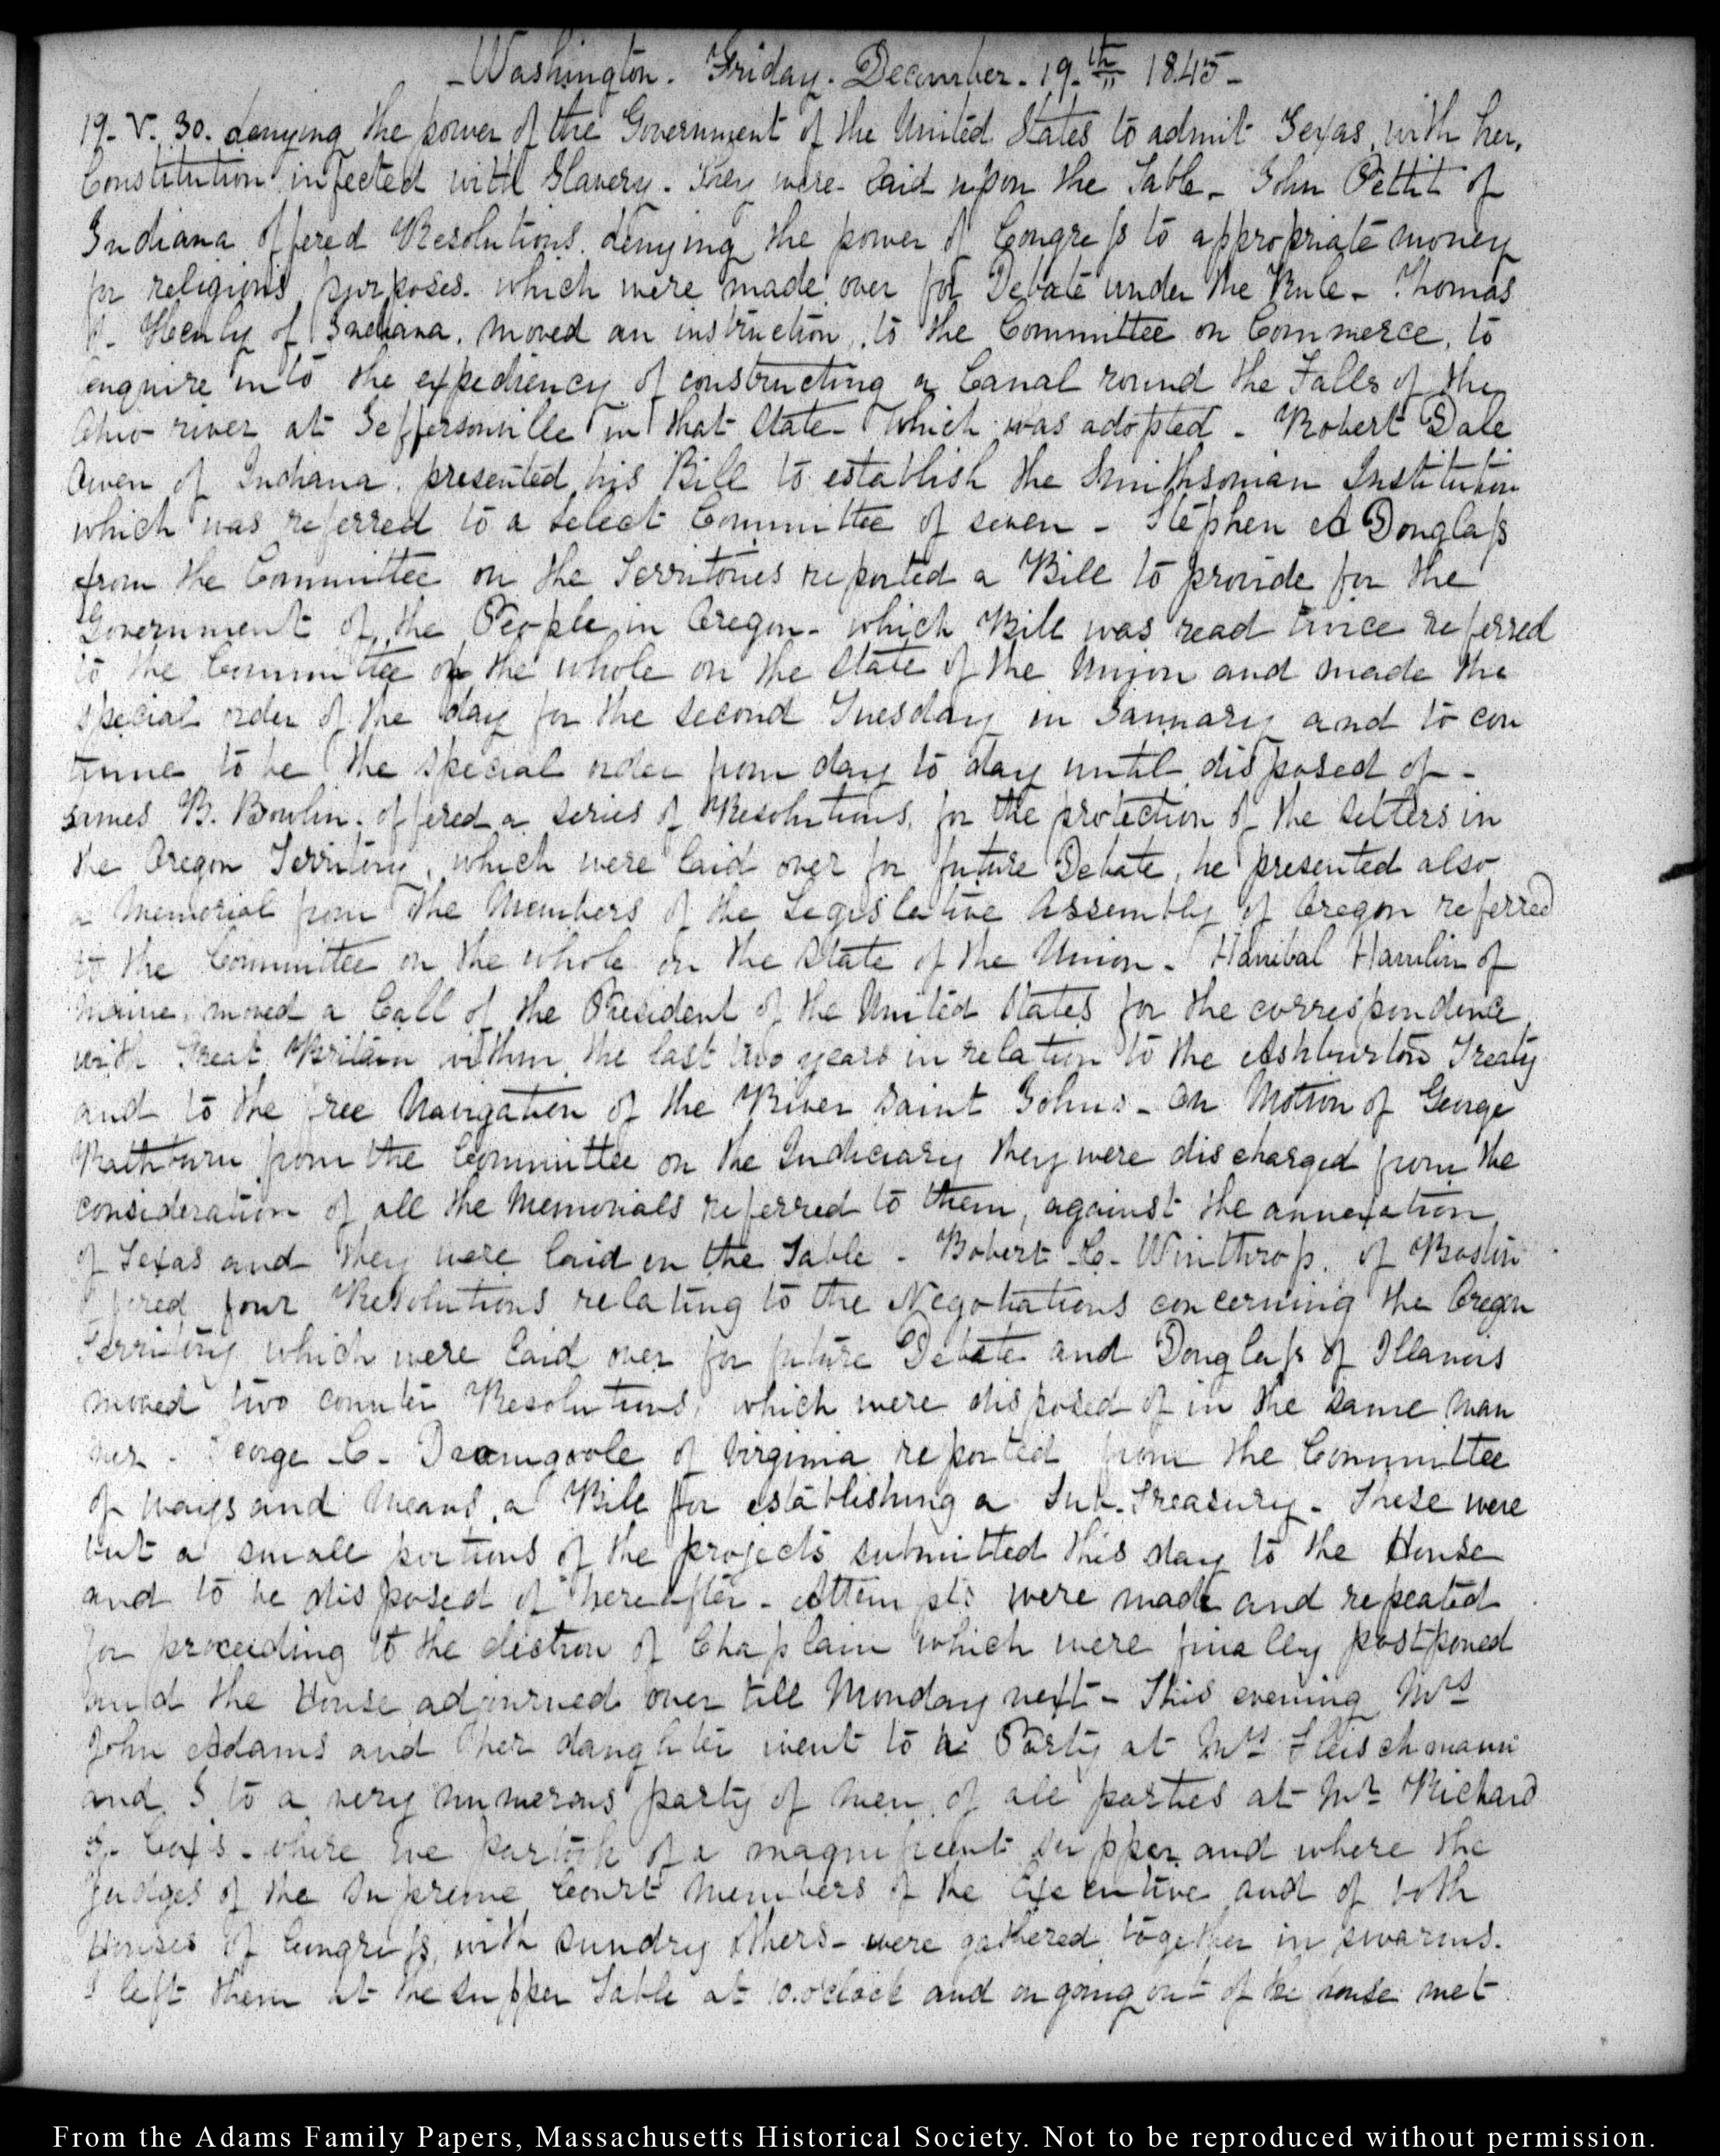 Washington. Friday. December. 19th 1845
19. V. 30. denying the power of the Government of the United States to admit Texas, with her,
Constitution infected with Slavery. They were laid upon the Table. John Pettit of
Indiana offered Resolutions denying the power of Congress to appropriate money
for religious purposes. which were made over for Debate under the Rule. Thomas
J. Henly of Indiana. moved an instruction, to the Committee on Commerce, to
enquire into the expediency of constructing a Canal round the Falls of the
Ohio river at Jeffersonville in that State which was adopted. Robert Dale
Owen of Indiana. presented his Bill to establish the Smithsonian Institution
which was referred to a select Committee of seven - Stephen A Douglass
from the Committee on the Territories reported a Bill to provide for the
Government of the People in Oregon. which Bill was read twice referred
to the Committee of the whole on the State of the Union and made the
special order of the day for the second Tuesday in January and to con
tinue to be the special order from day to day until disposed of -
James B. Bowlin. offered a series of Resolutions, for the protection of the settlers in
the Oregon Territory, which were laid over for future Debate, he presented also
a Memorial from the Members of the Legislative Assembly of Oregon referred
to the Committee on the whole on the State of the Union. Hanibal Hamlin of
Maine, moved a Call of the President of the United States for the correspondence
with Great Britain within the last two years in relation to the Ashburton Treaty
and to the free Navigation of the River Saint Johns - On Motion of George
Rathburn from the Committee on the Judiciary they were discharged from the
consideration of all the Memorials referred to them, against the annexation
of Texas and they were laid on the Table - Robert C. Winthrop. of Boston
offered four Resolutions relating to the Negotiations concerning the Oregon
Territory which were laid over for future Debate and Douglass of Illanois
moved two counter Resolutions, which were disposed of in the same man
ner - George C. Dromgoole of Virginia reported from the Committee
of ways and Means, a Bill for establishing a Sub-Treasury - These were
but a small portions of the projects submitted this day to the House
and to be disposed of hereafter - Attempts were made and repeated
for proceeding to the election of Chaplain which were finally postponed
and the House adjourned over till Monday next - This evening Mrs
John Adams and her daughter went to a Party at Mrs Fleischmann
and I to a very numerous party of men of all parties at Mr Richard
S. Cox's - where we partook of a magnificent supper and where the
Judges of the Supreme Court Members of the Executive and of both
Houses of Congress, with sundry others - were gathered together in swarms.
I left them at the supper Table at 10. o'clock and on going out of the house met
From the Adams Family Papers, Massachusetts Historical Society. Not to be reproduced without permission.